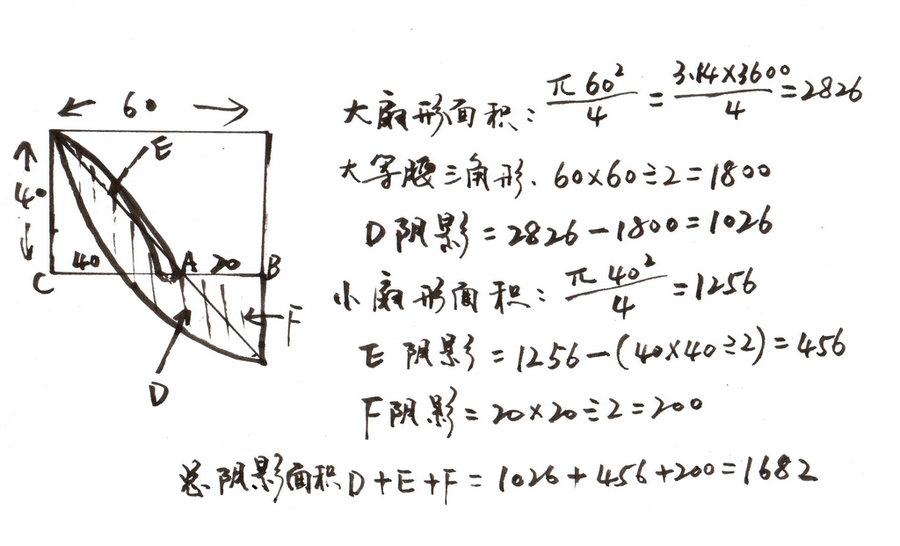 ← 60 →
大扇形面积: π60²/4 = 3.14×3600/4 = 2826
E
↑
40
↓
大等腰三角形. 60×60÷2=1800
D阴影=2826-1800=1026
C 40 A 20 B
小扇形面积: π40²/4 =1256
F
E阴影=1256-(40×40÷2)=456
D
F阴影=20×20÷2=200
总阴影面积D+E+F=1026+456+200=1682